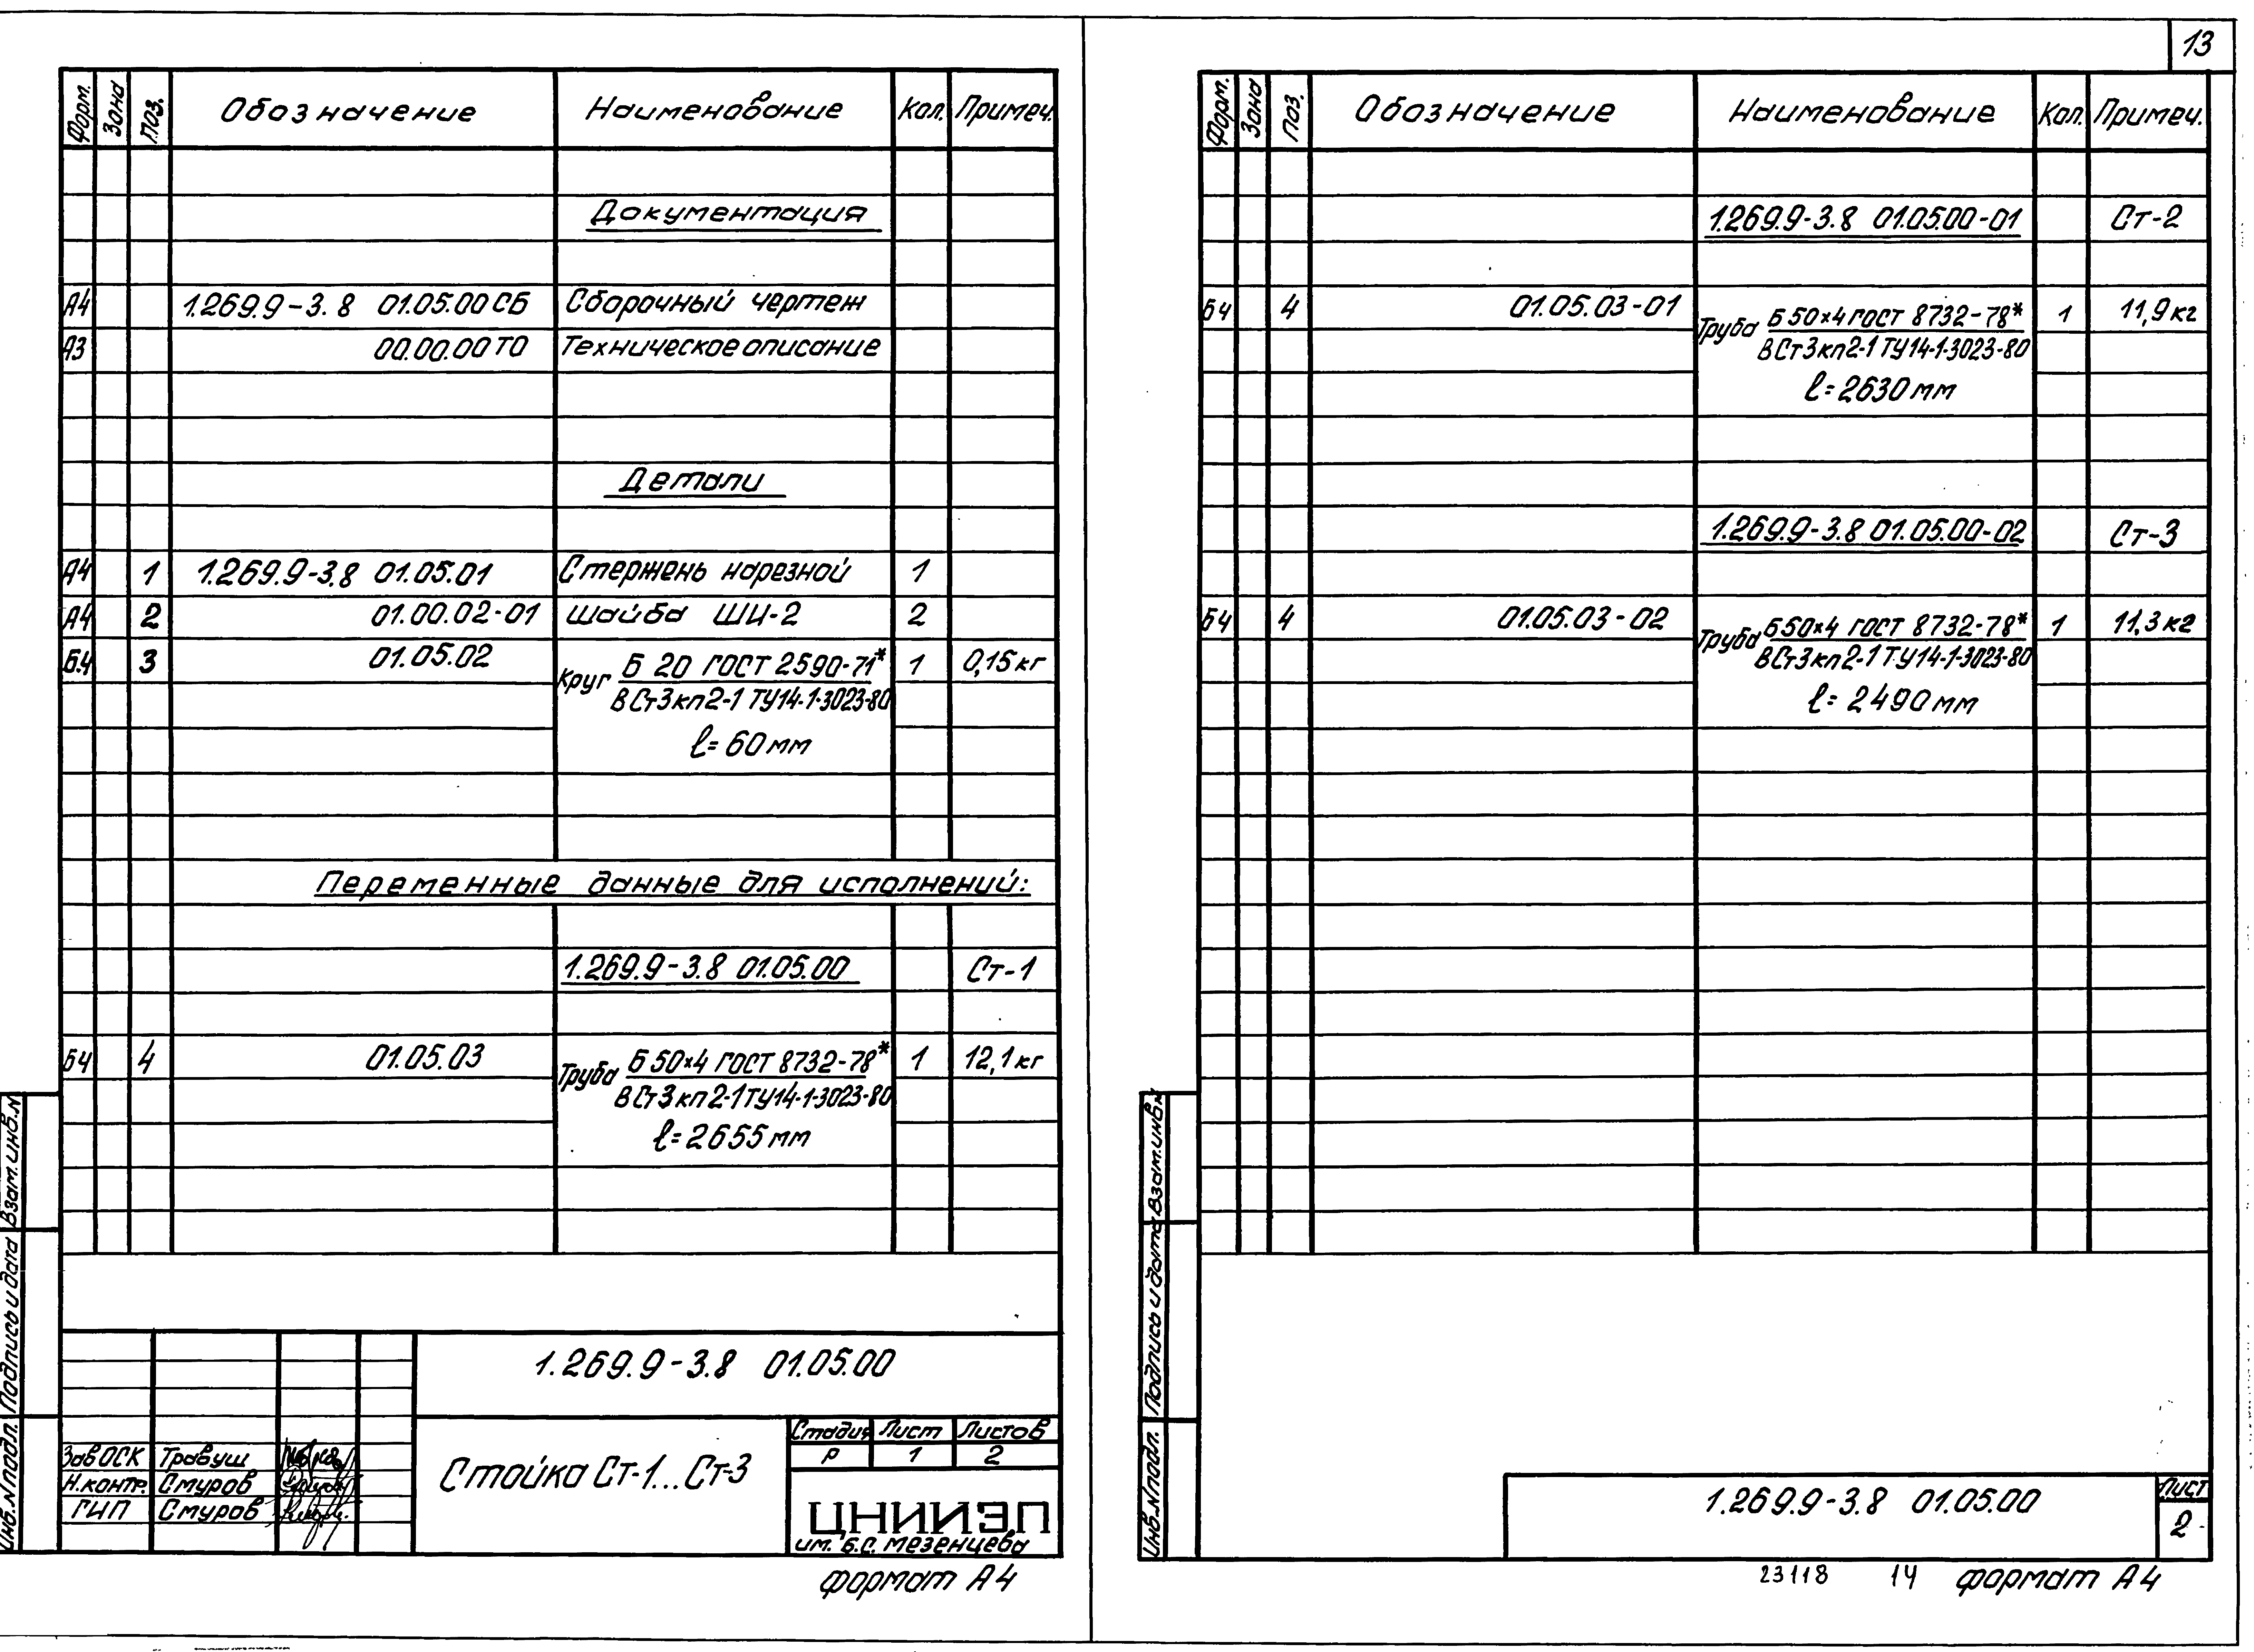 13
Форм. Зона Поз. Обозначение Наименование Кол. Примеч.
Документация
А4 1.269.9-3.8 01.05.00 СБ Сборочный чертеж
А3 00.00.00 ТО Техническое описание
Детали
А4 1 1.269.9-3.8 01.05.01 Стержень нарезной 1
А4 2 01.00.02-01 Шайба ШИ-2 2
Б.4 3 01.05.02 Круг Б 20 ГОСТ 2590-71* 1 0,15 кг
В Ст3кп2-1 ТУ14-1-3023-80
ℓ= 60 мм
Переменные данные для исполнений:
1.269.9-3.8 01.05.00 Ст-1
Б4 4 01.05.03 Труба Б 50×4 ГОСТ 8732-78* 1 12,1 кг
В Ст3кп2-1 ТУ14-1-3023-80
ℓ=2655 мм
1.269.9-3.8 01.05.00
Стойка Ст-1...Ст-3
Стадия Лист Листов
Р 1 2
Зав ОСК Травуш
Н.контр. Смуров
ГИП Смуров
ЦНИИЭП
им. Б.С. Мезенцева
формат А4
Взам.инв.N
Подпись и дата
Инв.N подл.
Форм. Зона Поз. Обозначение Наименование Кол. Примеч.
1.269.9-3.8 01.05.00-01 Ст-2
Б4 4 01.05.03-01 Труба Б 50×4 ГОСТ 8732-78* 1 11,9 кг
В Ст3кп2-1 ТУ14-1-3023-80
ℓ=2630 мм
1.269.9-3.8 01.05.00-02 Ст-3
Б4 4 01.05.03-02 Труба Б50×4 ГОСТ 8732-78* 1 11,3 кг
В Ст3кп2-1 ТУ14-1-3023-80
ℓ= 2490 мм
Взам.инв.N
Подпись и дата
Инв.N подл.
1.269.9-3.8 01.05.00
Лист
2
23118 14 формат А4